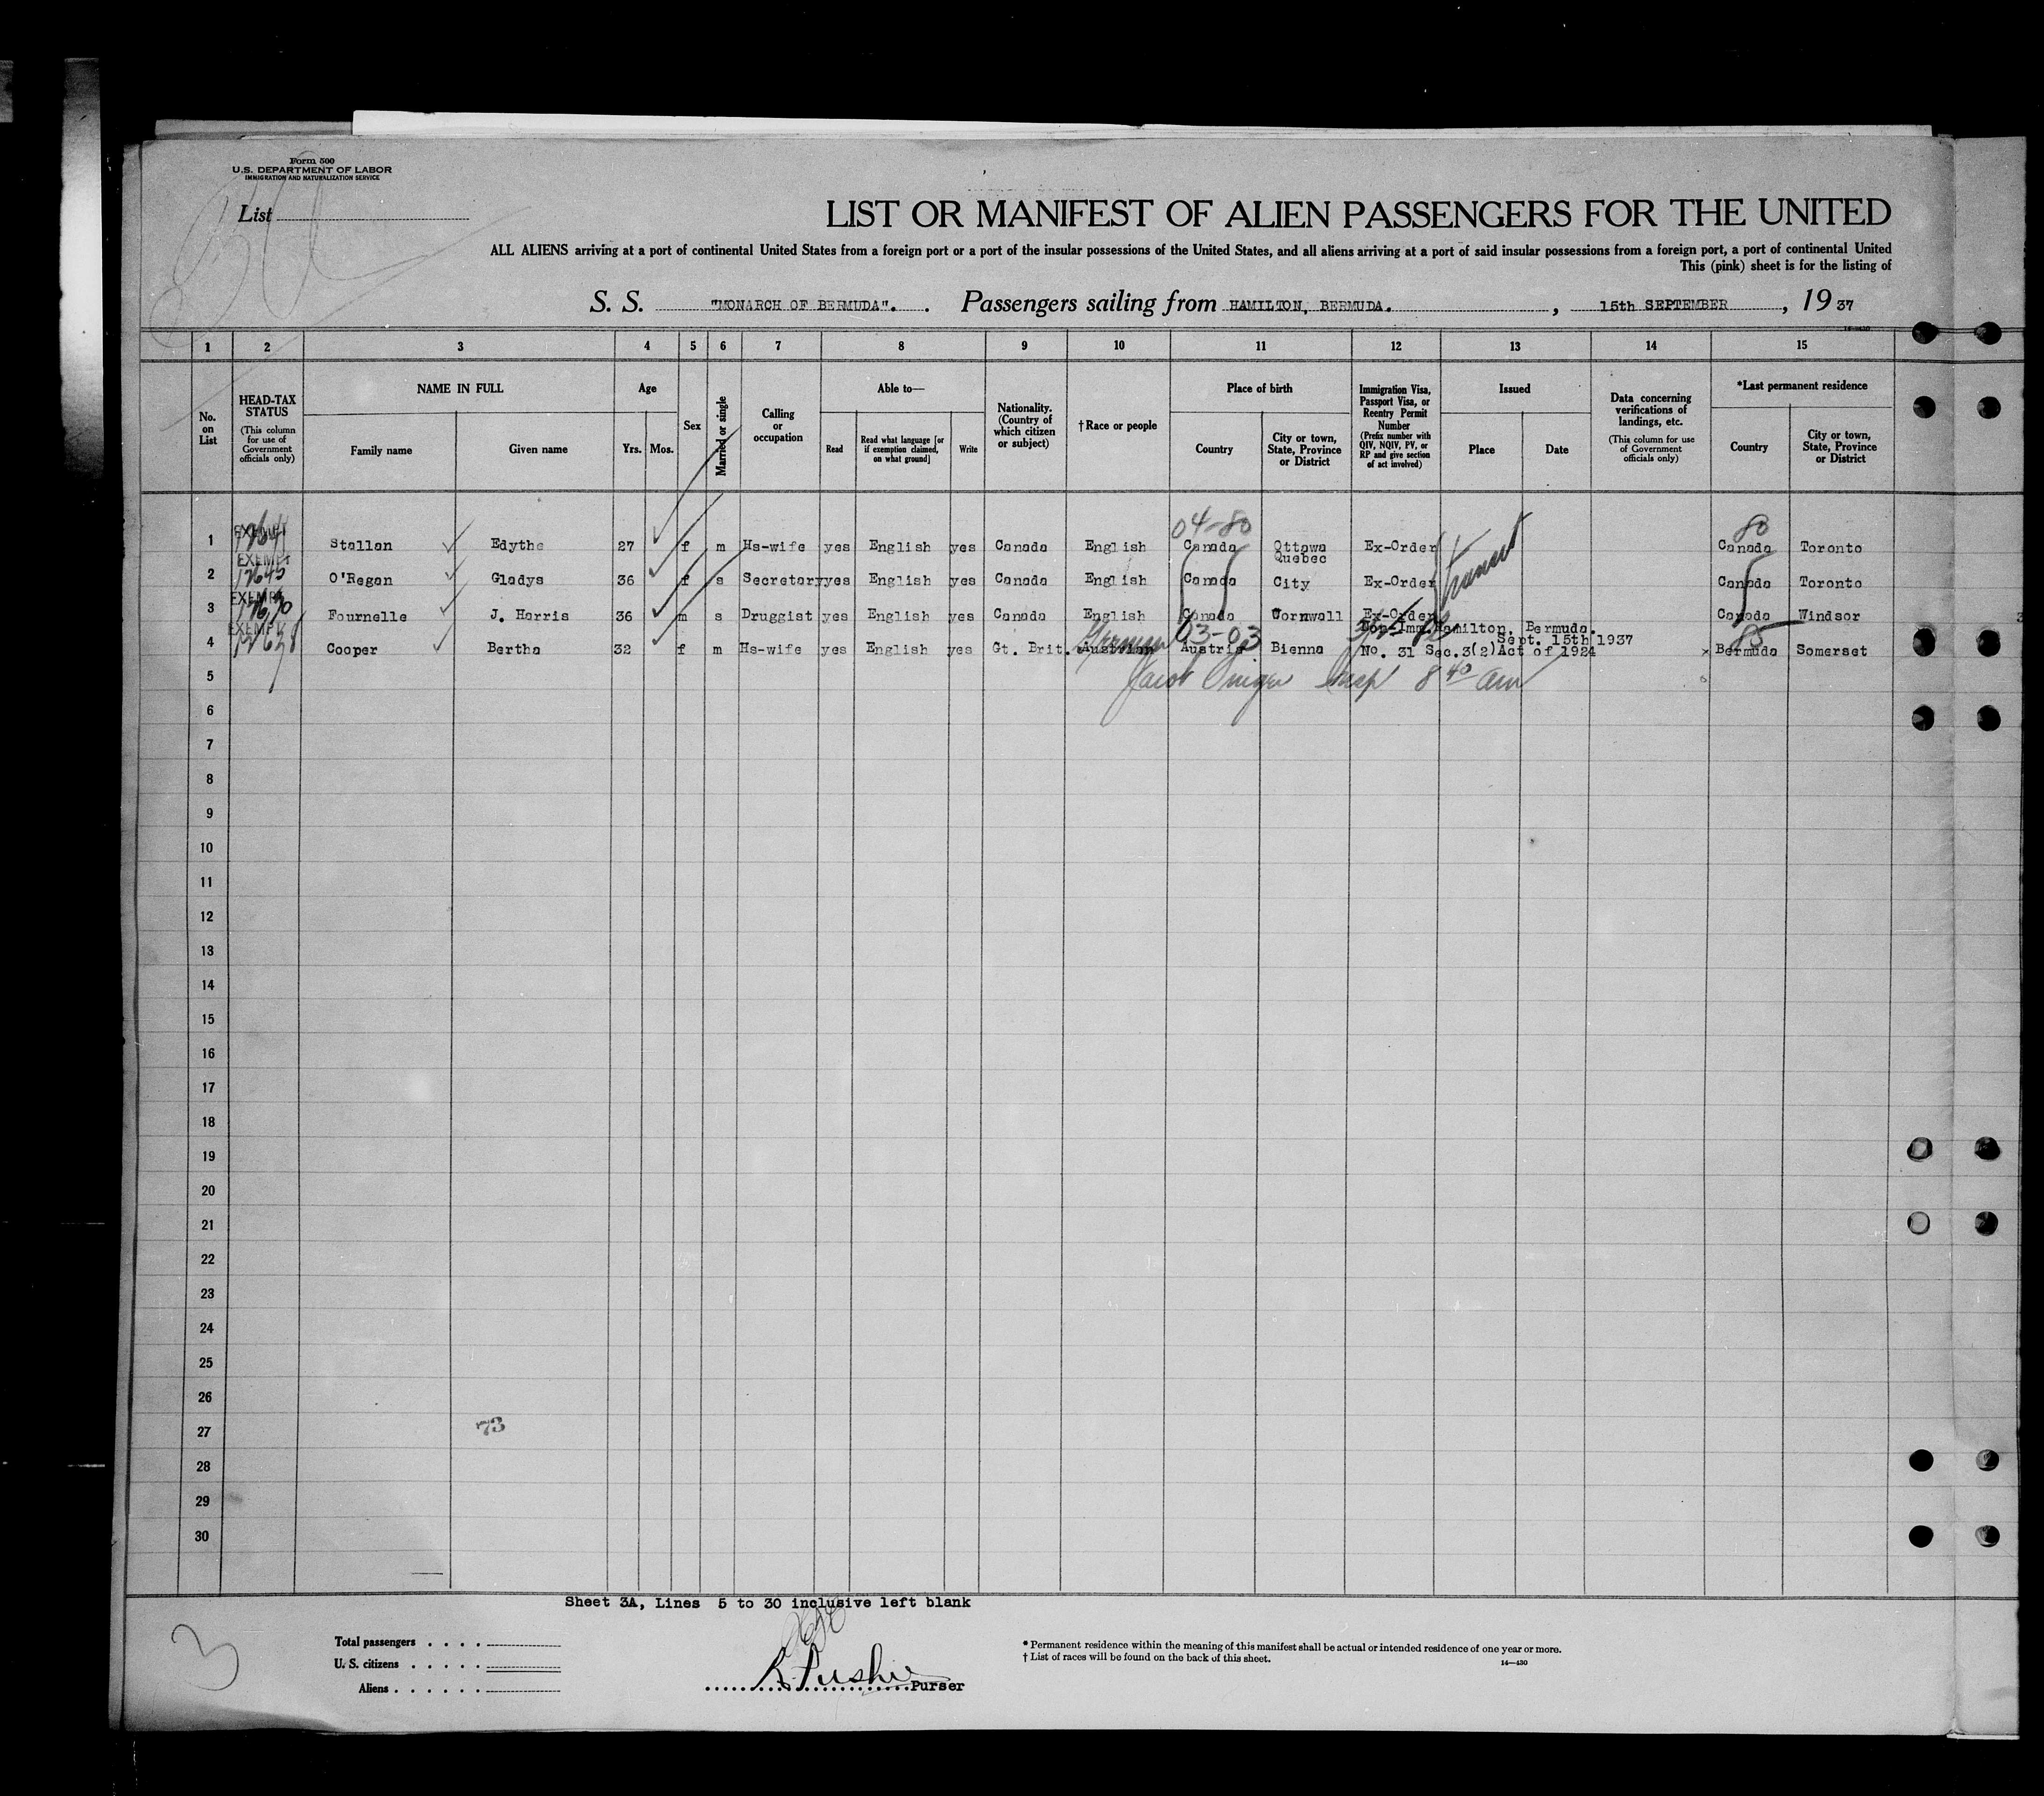 Form 500
U.S. DEPARTMENT OF LABOR
IMMIGRATION AND NATURALIZATION SERVICE
List
LIST OR MANIFEST OF ALIEN PASSENGERS FOR THE UNITED
ALL ALIENS arriving at a port of continental United States from a foreign port or a port of the insular possessions of the United States, and all aliens arriving at a port of said insular possessions from a foreign port, a port of continental United
This (pink) sheet is for the listing of
S. S. "MONARCH OF BERMUDA". Passengers sailing from HAMILTON, BERMUDA. , 15th SEPTEMBER , 19 37
1 2 3 4 5 6 7 8 9 10 11 12 13 14 15
No. on List
HEAD-TAX STATUS (This column for use of Government officials only)
NAME IN FULL Family name Given name
Age Yrs. Mos.
Sex
Married or single
Calling or occupation
Able to— Read Read what language [or if exemption claimed, on what ground] Write
Nationality. (Country of which citizen or subject)
†Race or people
Place of birth Country City or town, State, Province or District
Immigration Visa, Passport Visa, or Reentry Permit Number (Prefix number with QIV, NQIV, PV, or RP and give section of act involved)
Issued Place Date
Data concerning verifications of landings, etc. (This column for use of Government officials only)
*Last permanent residence Country City or town, State, Province or District
04-80 80
1 EXEMPT Stallan Edythe 27 f m Hs-wife yes English yes Canada English Canada Ottawa Ex-Order Canada Toronto
2 EXEMPT O'Regan Gladys 36 f s Secretary yes English yes Canada English Canada Quebec City Ex-Order Canada Toronto
Transit
3 EXEMPT Fournelle J. Harris 36 m s Druggist yes English yes Canada English Canada Cornwall Ex-Order Canada Windsor
4 EXEMPT Cooper Bertha 32 f m Hs-wife yes English yes Gt. Brit. Austrian German 03-03 Austria Bienna Non-Imm. Hamilton, Bermuda. Sept. 15th 1937 No. 31 Sec.3(2)Act of 1924 85 x Bermuda Somerset
5 Jacob Insp 8 40 am
6
7
8
9
10
11
12
13
14
15
16
17
18
19
20
21
22
23
24
25
26
27 73
28
29
30
Sheet 3A, Lines 5 to 30 inclusive left blank
3
Total passengers . . . .
U. S. citizens . . . . .
Aliens . . . . . .
Purser
* Permanent residence within the meaning of this manifest shall be actual or intended residence of one year or more.
† List of races will be found on the back of this sheet.
14—430